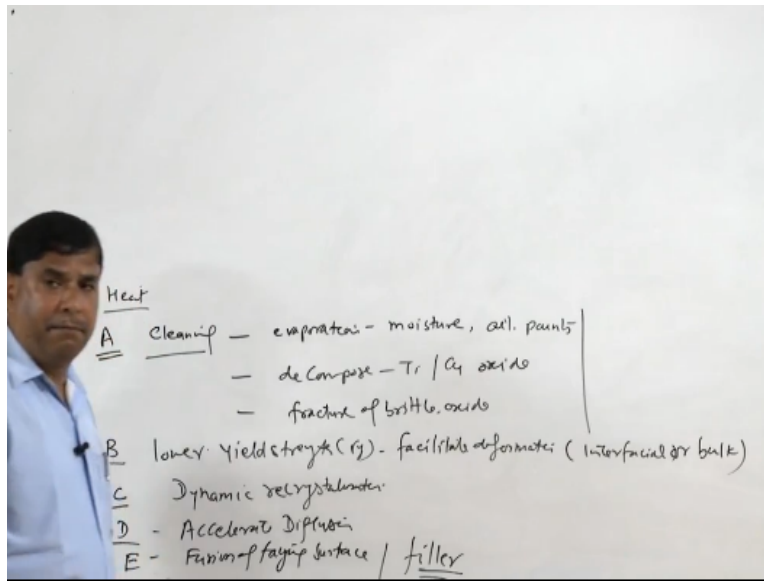 Heat
A Cleaning - evaporation - moisture, oil. paints
- decompose - Ti / Cu oxide
- fracture of brittle oxide
B lower yield strength (σy) - facilitate deformation (interfacial or bulk)
C Dynamic recrystallization
D - Accelerat Diffusion
E - Fusion of faying surface / filler